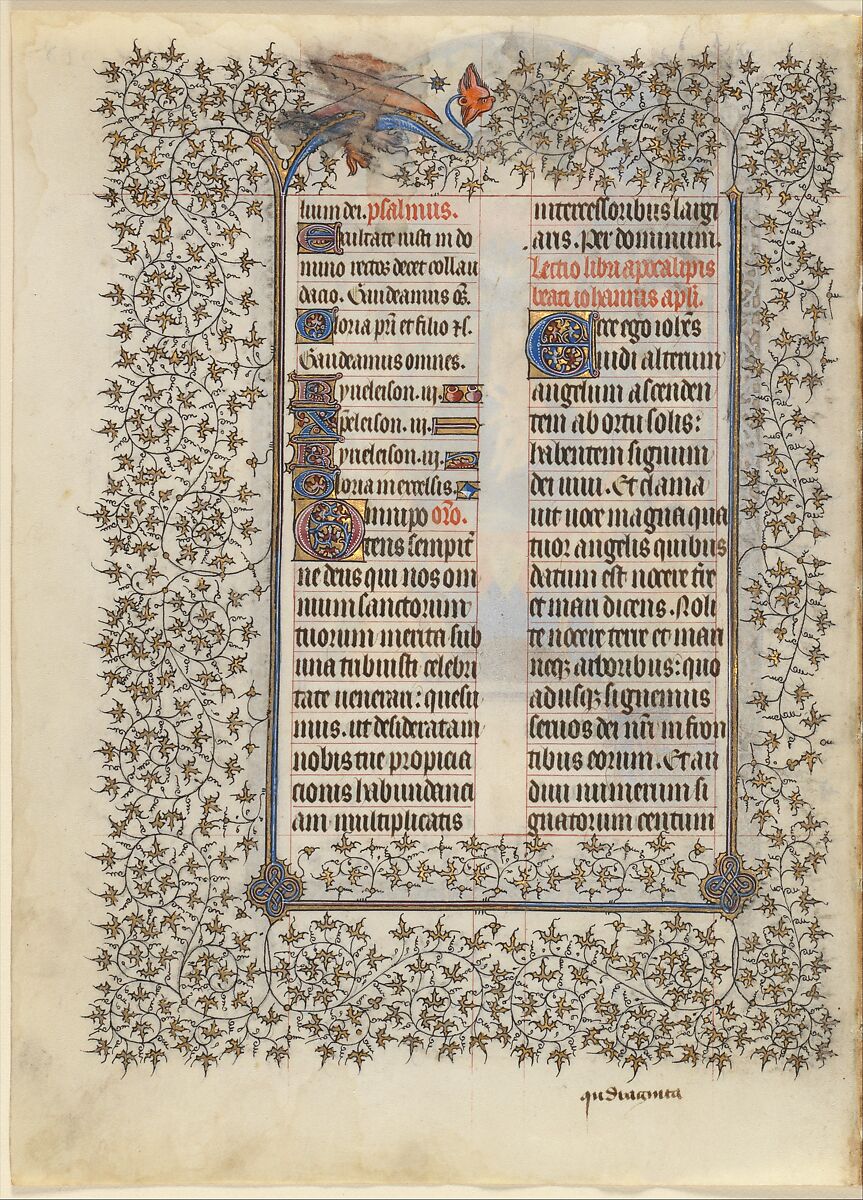 lium dei. psalmus.
Exultate iusti in do
mino rectos decet collau
dacio. Gaudeamus oēs.
Gloria pri et filio et s.
Gaudeamus omnes.
Kyrieleison .iij.
Xpeleison .iij.
Kyrieleison .iij.
Gloria in excelsis.
Omnipo oro.
tens sempit
ne deus qui nos om
nium sanctorum
tuorum merita sub
una tribuisti celebri
tate uenerari: quesu
mus. ut desideratam
nobis tue propicia
cionis habundanci
am multiplicatis
intercessoribus largi
aris. Per dominum.
Lectio libri apocalipsis
beati iohannis apli.
Ecce ego iohes
uidi alterum
angelum ascenden
tem ab ortu solis:
habentem signum
dei uiui. Et clama
uit uoce magna qua
tuor angelis quibus
datum est nocere tre
et mari dicens. Noli
te nocere terre et mari
neq; arboribus: quo
adusq; signemus
seruos dei nri in fron
tibus eorum. Et au
diui numerum si
gnatorum centum
quadraginta